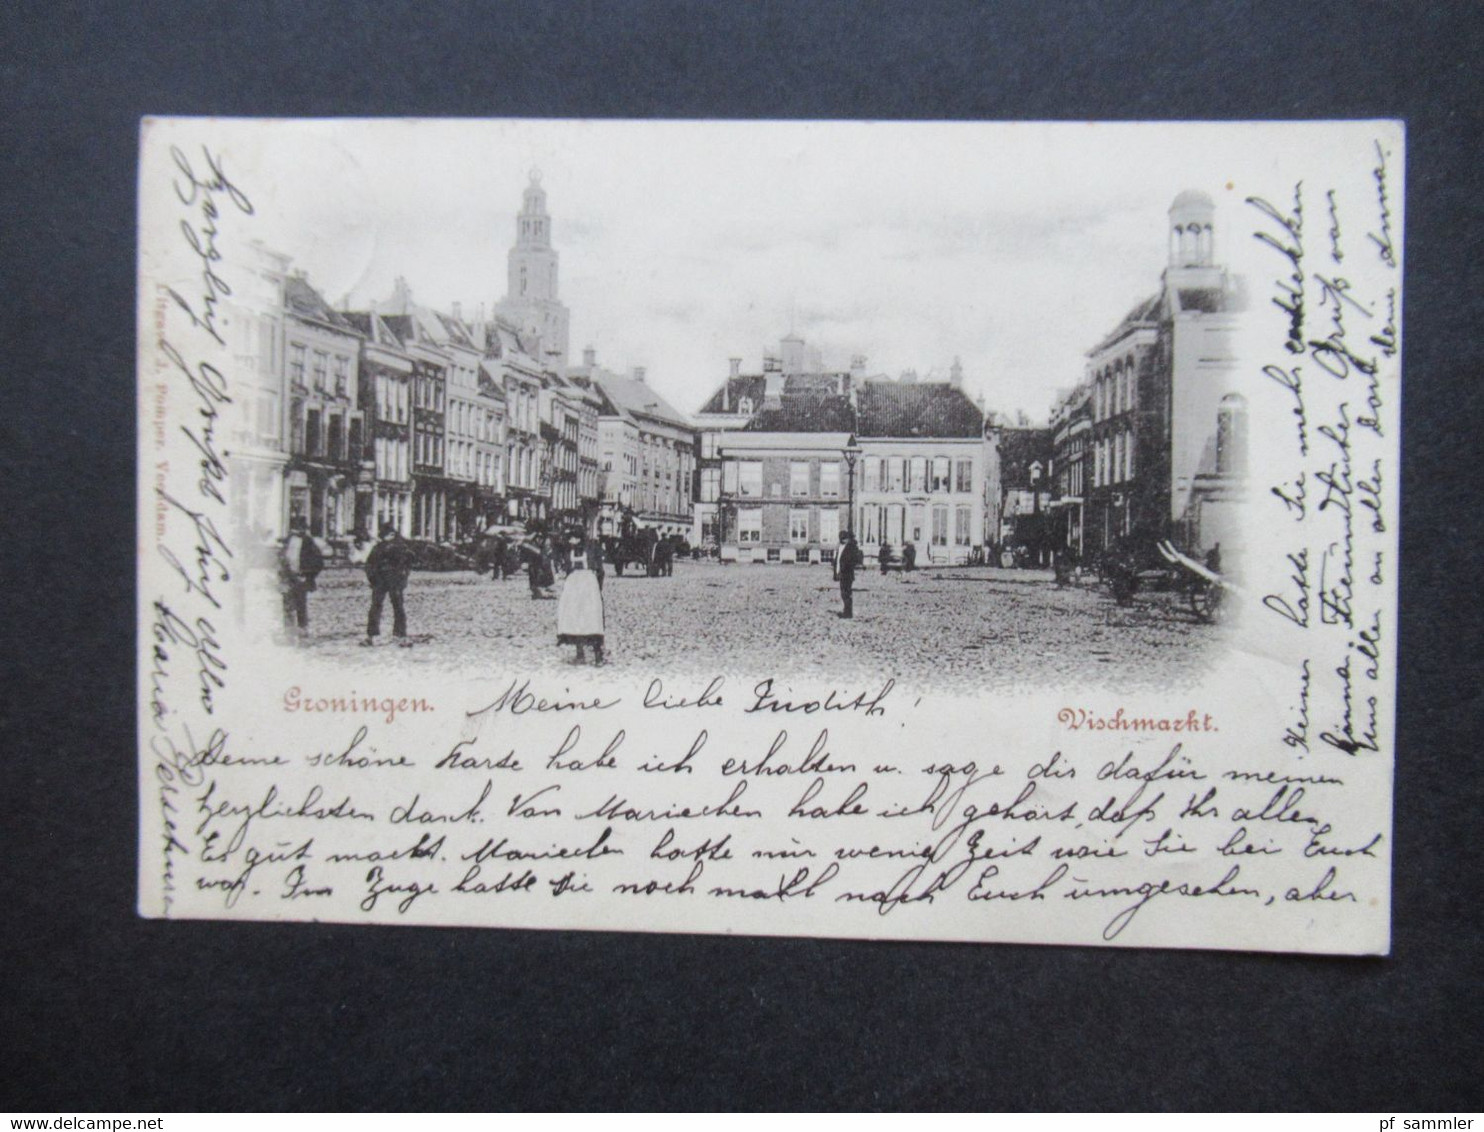 Groningen.
Vischmarkt.
Uitgave J. Pomper. Veendam.
Meine liebe Judith!
Deine schöne Karte habe ich erhalten u. sage dir dafür meinen
herzlichsten dank. Von Mariechen habe ich gehört, daß Ihr allen
Es gut macht. Mariechen hatte nur wenig Zeit wie Sie bei Euch
war. Im Zuge hatte Sie noch mahl nach Euch umgesehen, aber
Keiner hatte Sie mehr entdekken
können. Freundlicher Gruß von
uns allen an allen dort dein Anna.
Herzlich Grüßt
Maria
delcampe.net
pf_sammler